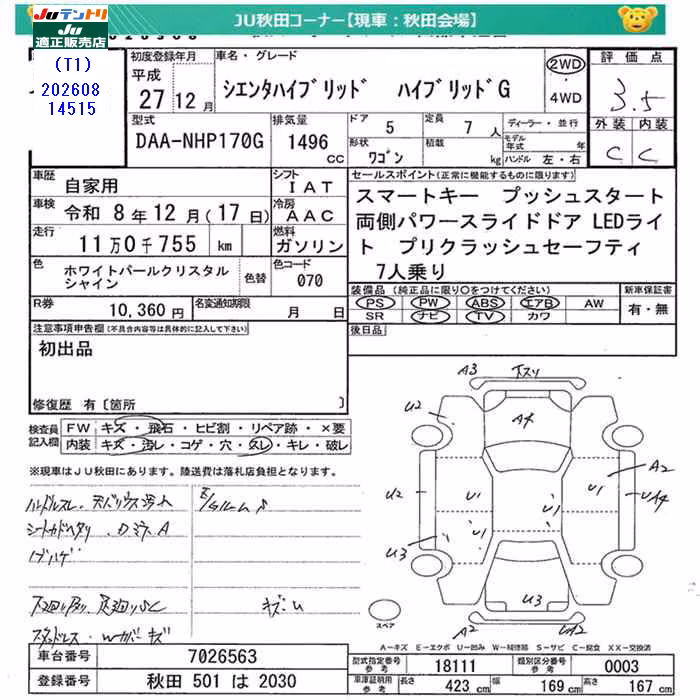 JU秋田コーナー【現車：秋田会場】
JUテントリ
JU適正販売店
(T1)
202608
14515
初度登録年月
平成
27年12月
車名・グレード
シエンタハイブリッド ハイブリッドG
2WD
・
4WD
評価点
3.5
外装 内装
C C
型式
DAA-NHP170G
排気量
1496
CC
ドア 5
定員 7人
形状 ワゴン
積載 kg
ディーラー・並行
モデル年式 年
ハンドル 左・右
車歴 自家用
シフト IAT
車検 令和 8年12月(17日)
冷房 AAC
走行 11万0千755 km
燃料 ガソリン
色 ホワイトパールクリスタルシャイン
色替
色コード 070
R券 10,360円
名変通知期限 月 日
セールスポイント(正常に機能するものに限ります)
スマートキー プッシュスタート
両側パワースライドドア LEDライ
ト プリクラッシュセーフティ
7人乗り
装備品(純正品に限り○をつけてください)
PS PW ABS エアB AW
SR ナビ TV カワ
新車保証書
有・無
後日品
注意事項申告欄(不具合内容等は具体的に記入して下さい)
初出品
修復歴 有〔箇所 〕
検査員記入欄
FW キズ・飛石・ヒビ割・リペア跡・×要
内装 キズ・汚レ・コゲ・穴・スレ・キレ・破レ
※現車はJU秋田にあります。陸送費は落札店負担となります。
ハンドルスレ
キズU
A3
U2
A4
A2
U2
U1
U1
U1
U1
U3
U3
A2
スペア
A－キズ E－エクボ U－凹み W－補修跡 S－サビ C－腐食 XX－交換済
車台番号 7026563
登録番号 秋田 501 は 2030
型式指定番号 参考 18111
類別区分番号 参考 0003
車庫証明用 参考
長さ 423 cm
幅 169 cm
高さ 167 cm